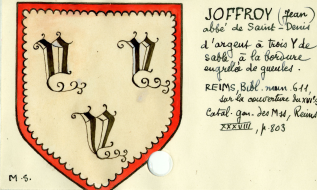 JOFFROY (Jean)
abbé de Saint-Denis
d'argent à trois Y de
sable à la bordure
engrelée de gueules.
REIMS, Bibl. mun. 611,
sur la couverture du XVIe s.
Catal. gén. des Mss, Reims
XXXVIII, p. 803
Y Y
Y
M-S.